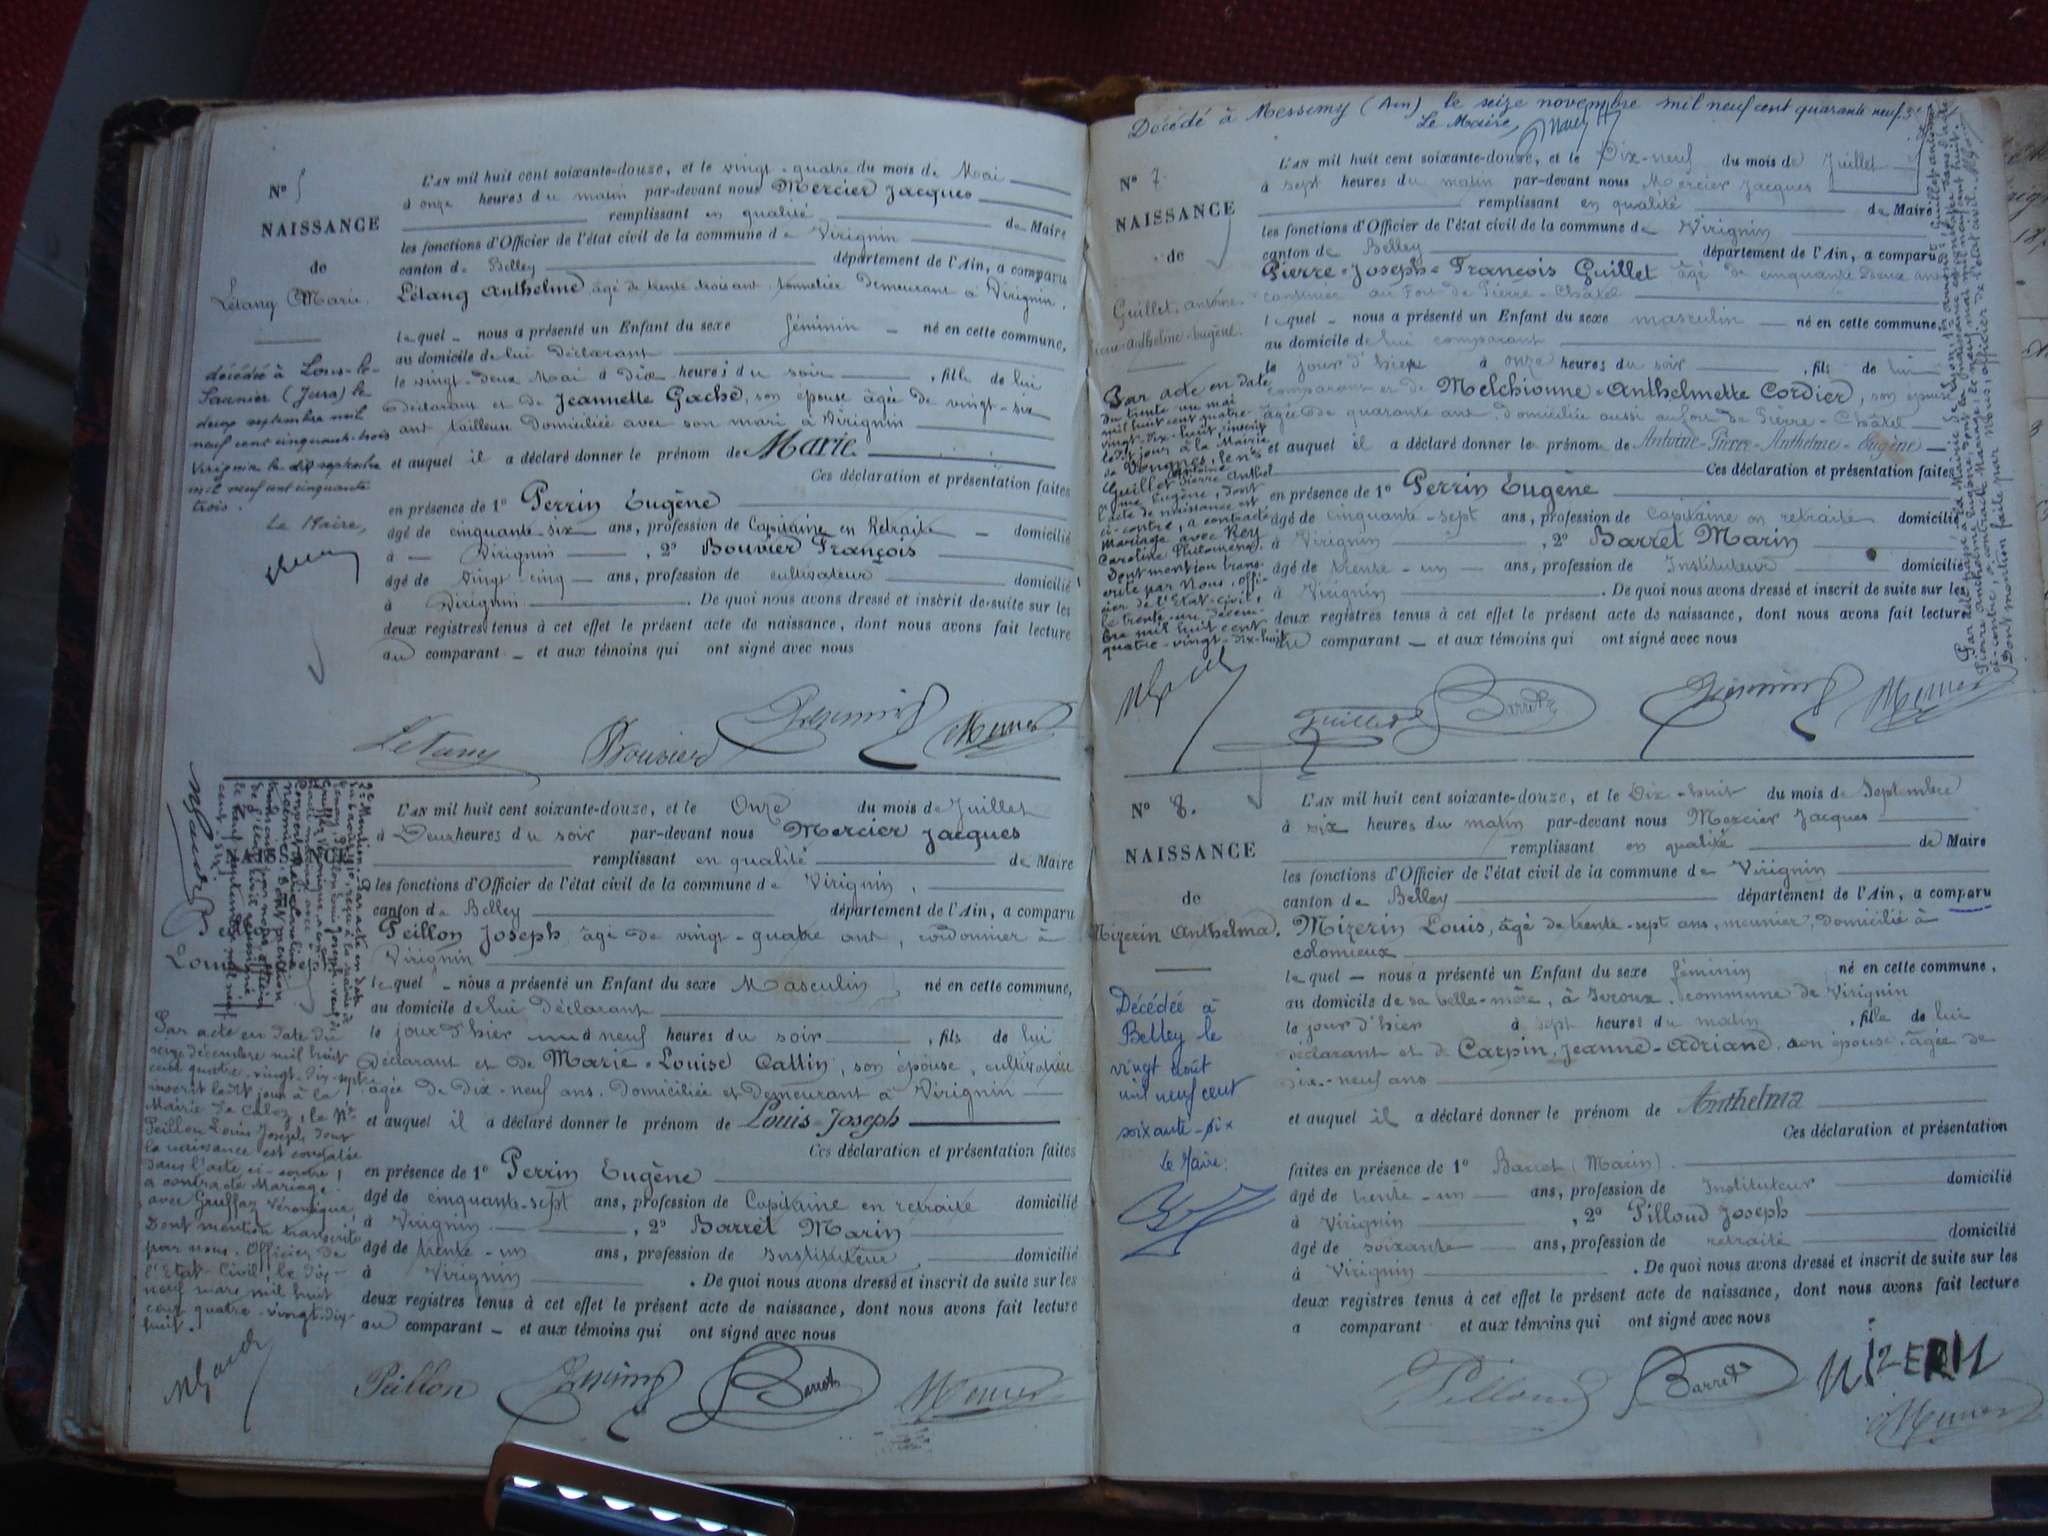 N° 5
NAISSANCE
de
Létang Marie.
décédée à Lons-le-
Saunier (Jura) le
deux septembre mil
neuf cent cinquante-trois
Virignin le dix septembre
mil neuf cent cinquante
trois.
Le Maire,
L'AN mil huit cent soixante-douze, et le vingt-quatre du mois de Mai
à onze heures du matin par-devant nous Mercier Jacques
remplissant en qualité de Maire
les fonctions d'Officier de l'état civil de la commune de Virignin
canton de Belley département de l'Ain, a comparu
Létang Anthelme âgé de trente trois ans tonnelier demeurant à Virignin.
lequel nous a présenté un Enfant du sexe féminin né en cette commune,
au domicile de lui déclarant
le vingt-deux Mai à dix heures du soir, fille de lui
déclarant et de Jeannette Gache, son épouse âgée de vingt-six
ans tailleuse domiciliée avec son mari à Virignin
et auquel il a déclaré donner le prénom de Marie.
Ces déclaration et présentation faites
en présence de 1° Perrin Eugène
âgé de cinquante-six ans, profession de Capitaine en Retraite domicilié
à Virignin, 2° Bouvier François
âgé de vingt-cinq ans, profession de cultivateur domicilié
à Virignin. De quoi nous avons dressé et inscrit de suite sur les
deux registres tenus à cet effet le présent acte de naissance, dont nous avons fait lecture
au comparant et aux témoins qui ont signé avec nous
Létang Bouvier
L'AN mil huit cent soixante-douze, et le Onze du mois de Juillet
à Deux heures du soir par-devant nous Mercier Jacques
remplissant en qualité de Maire
les fonctions d'Officier de l'état civil de la commune de Virignin,
canton de Belley département de l'Ain, a comparu
Peillon Joseph âgé de vingt-quatre ans, cordonnier à
Virignin
lequel nous a présenté un Enfant du sexe Masculin, né en cette commune,
au domicile de lui déclarant
le jour d'hier à neuf heures du soir, fils de lui
Déclarant et de Marie-Louise Cattin, son épouse, cultivatrice
âgée de Dix-neuf ans. Domiciliée et demeurant à Virignin
et auquel il a déclaré donner le prénom de Louis-Joseph
Ces déclaration et présentation faites
en présence de 1° Perrin Eugène
âgé de cinquante-sept ans, profession de Capitaine en retraite domicilié
à Virignin, 2° Barret Marin
âgé de trente-un ans, profession de Instituteur domicilié
à Virignin. De quoi nous avons dressé et inscrit de suite sur les
deux registres tenus à cet effet le présent acte de naissance, dont nous avons fait lecture
au comparant et aux témoins qui ont signé avec nous
Par acte en date du
seize décembre mil huit
cent quatre-vingt-dix-sept
inscrit ledit jour à la
Mairie de Culoz, le N°
Peillon Louis Joseph, dont
la naissance est constatée
dans l'acte ci-contre,
a contracté Mariage
avec Gauffaz Véronique,
Dont mention transcrite
par nous, Officier de
l'Etat Civil, le dix-
neuf mars mil huit
cent quatre-vingt-dix-
huit.
Peillon Barret
Décédé à Messimy (Ain) le seize novembre mil neuf cent quarante neuf.
Le Maire,
N° 7.
NAISSANCE
de
Guillet, Antoine
Pierre-Anthelme-Eugène.
L'AN mil huit cent soixante-douze, et le Dix-neuf du mois de Juillet
à sept heures du matin par-devant nous Mercier Jacques
remplissant en qualité de Maire
les fonctions d'Officier de l'état civil de la commune de Virignin
canton de Belley département de l'Ain, a comparu
Pierre-Joseph-François Guillet âgé de cinquante deux ans
cantinier au Fort de Pierre-Châtel
lequel nous a présenté un Enfant du sexe masculin né en cette commune,
au domicile de lui comparant
le jour d'hier à onze heures du soir, fils de lui
comparant et de Melchionne-Anthelmette Cordier, son épouse
âgée de quarante ans, domiciliée aussi au fort de Pierre-Châtel
et auquel il a déclaré donner le prénom de Antoine-Pierre-Anthelme-Eugène
Ces déclaration et présentation faites
en présence de 1° Perrin Eugène
âgé de cinquante-sept ans, profession de Capitaine en retraite domicilié
à Virignin, 2° Barret Marin
âgé de trente-un ans, profession de Instituteur domicilié
à Virignin. De quoi nous avons dressé et inscrit de suite sur les
deux registres tenus à cet effet le présent acte de naissance, dont nous avons fait lecture
au comparant et aux témoins qui ont signé avec nous
Par acte en date
du trente un mai
mil huit cent quatre-
vingt-dix-huit, inscrit
ledit jour à la Mairie
de Vongnes, le N°
Guillet Antoine Pierre Anthel
me Eugène, dont
l'acte de naissance est
ci-contre, a contracté
mariage avec Rey
Caroline Philomène,
dont mention trans-
crite par Nous, offi-
cier de l'Etat-civil,
le trente-un décem-
bre mil huit cent
quatre-vingt-dix-huit
Guillet Barret
N° 8.
NAISSANCE
de
Mizerin Anthelma.
Décédée à
Belley le
vingt août
mil neuf cent
soixante-six
Le Maire:
L'AN mil huit cent soixante-douze, et le Dix-huit du mois de Septembre
à six heures du matin par-devant nous Mercier Jacques
remplissant en qualité de Maire
les fonctions d'Officier de l'état civil de la commune de Virignin
canton de Belley département de l'Ain, a comparu
Mizerin Louis, âgé de trente-sept ans, meunier, domicilié à
colomieux
lequel nous a présenté un Enfant du sexe féminin né en cette commune,
au domicile de sa belle-mère, à commune de Virignin
le jour d'hier à sept heures du matin, fille de lui
déclarant et de Carpin, Jeanne-Adriane, son épouse, âgée de
dix-neuf ans
et auquel il a déclaré donner le prénom de Anthelma
Ces déclaration et présentation
faites en présence de 1° Barret (Marin)
âgé de trente-un ans, profession de Instituteur domicilié
à Virignin, 2° Pilloud Joseph
âgé de soixante ans, profession de retraité domicilié
à Virignin. De quoi nous avons dressé et inscrit de suite sur les
deux registres tenus à cet effet le présent acte de naissance, dont nous avons fait lecture
a comparant et aux témoins qui ont signé avec nous
Pilloud Barret MIZERIN